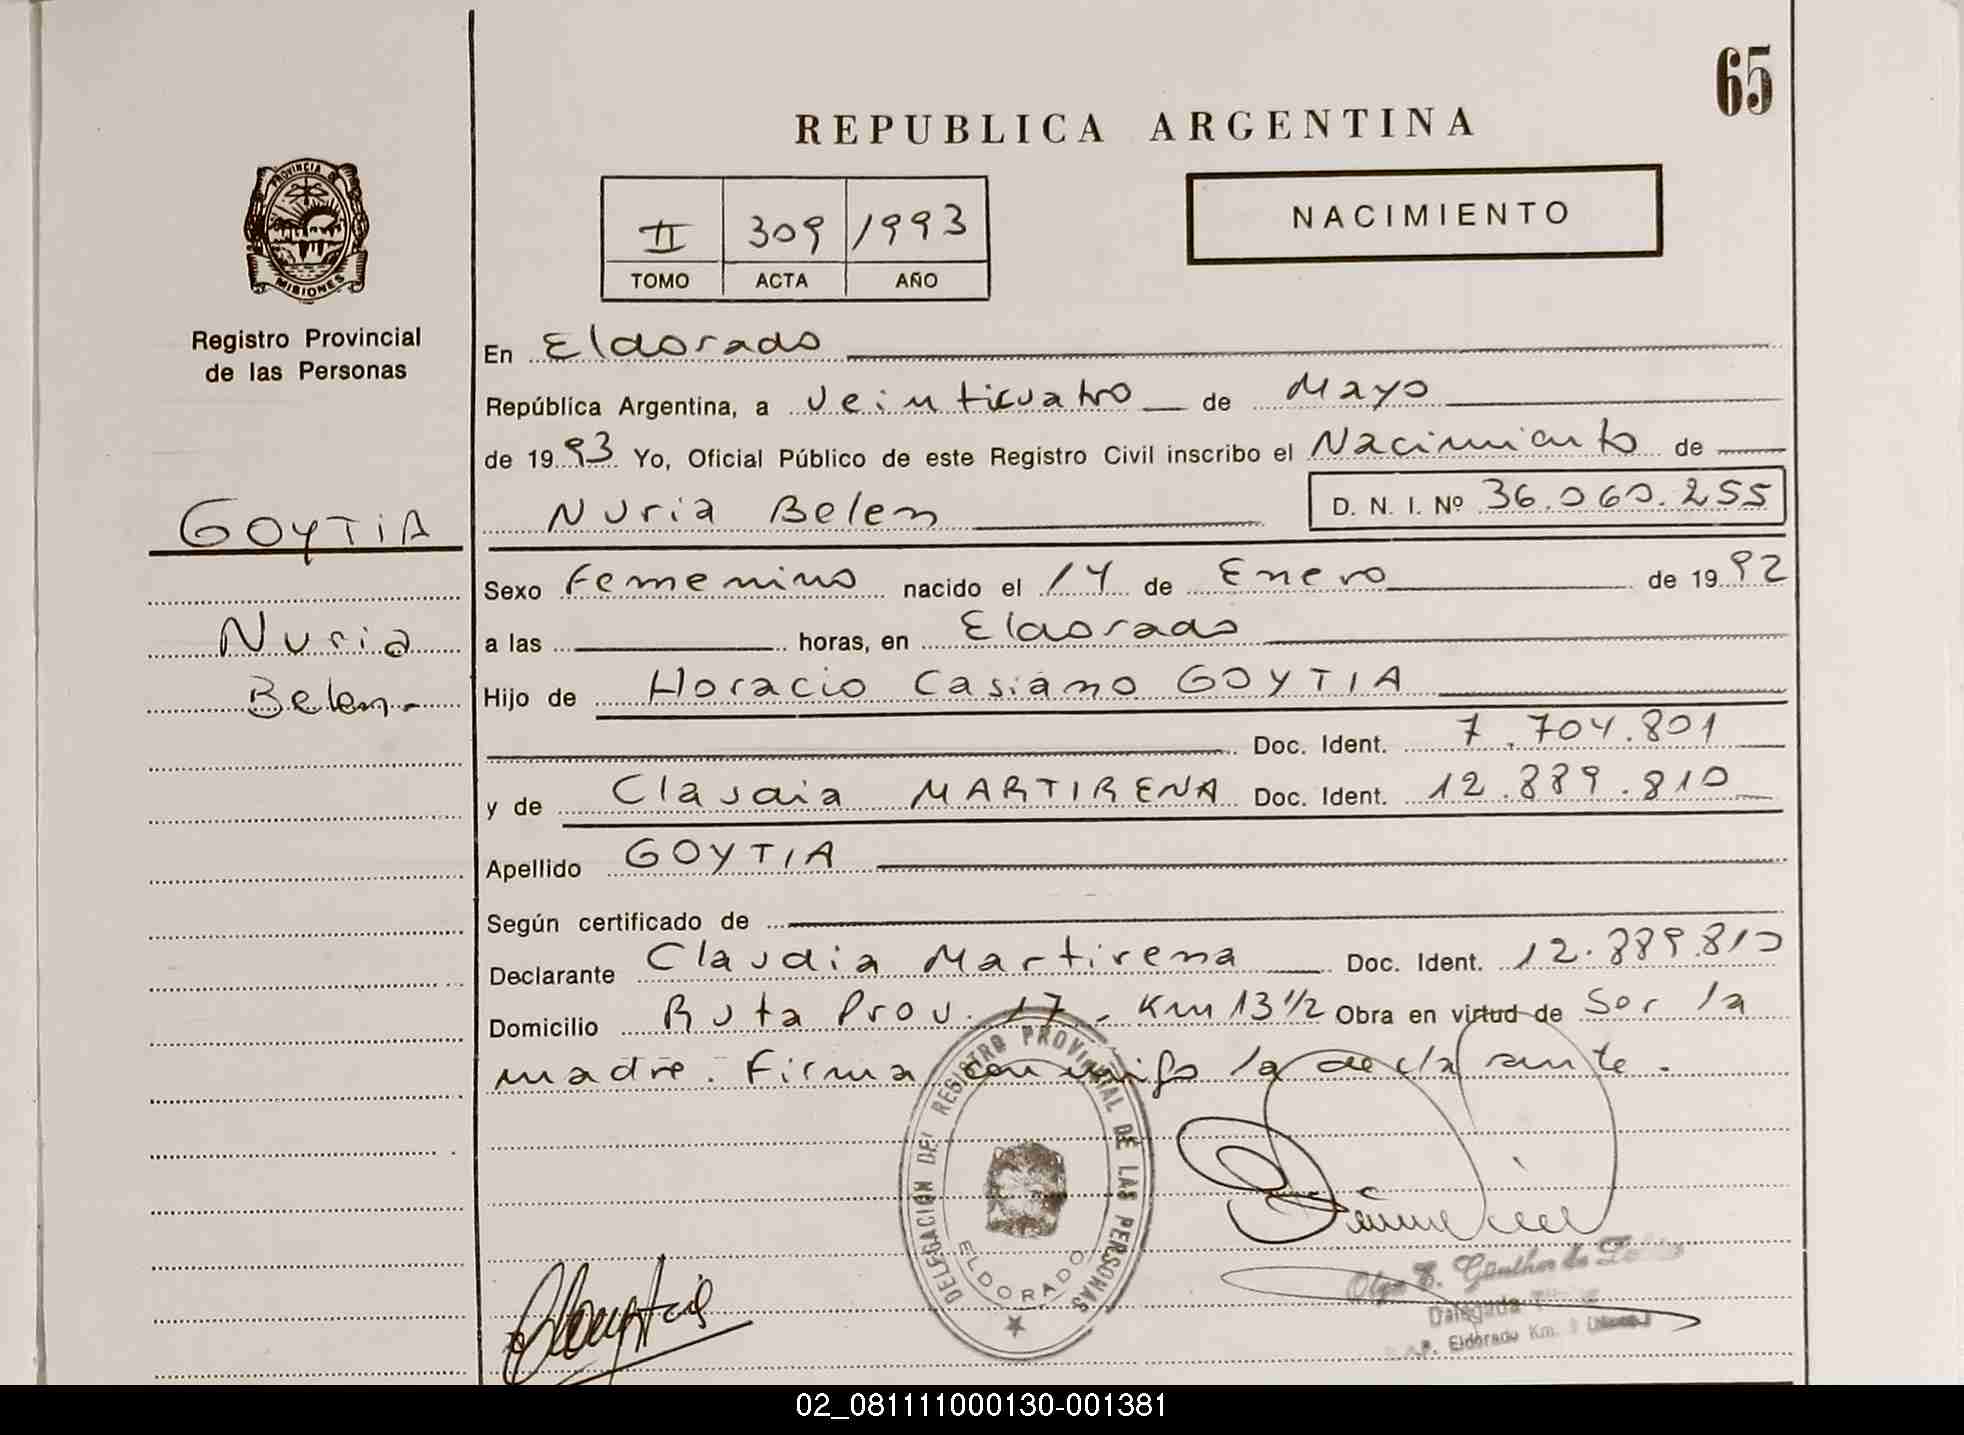 65
REPUBLICA ARGENTINA
PROVINCIA DE
MISIONES
Registro Provincial
de las Personas
II 309 1993
TOMO ACTA AÑO
NACIMIENTO
GOYTIA
Nuria
Belen.-
En Eldorado
República Argentina, a Veinticuatro de Mayo
de 1993 Yo, Oficial Público de este Registro Civil inscribo el Nacimiento de
Nuria Belen D. N. I. Nº 36.060.255
Sexo Femenino nacido el 14 de Enero de 1992
a las horas, en Eldorado
Hijo de Horacio Casiano GOYTIA
Doc. Ident. 7.704.801
y de Claudia MARTIRENA Doc. Ident. 12.889.810
Apellido GOYTIA
Según certificado de
Declarante Claudia Martirena Doc. Ident. 12.889.810
Domicilio Ruta Prov. 17 - Km 13 1/2 Obra en virtud de Ser la
madre. Firma conmigo la declarante.
DELEGACION DEL REGISTRO PROVINCIAL DE LAS PERSONAS
ELDORADO
Olga E. Günther de
Delegada
Eldorado Km.
02_081111000130-001381